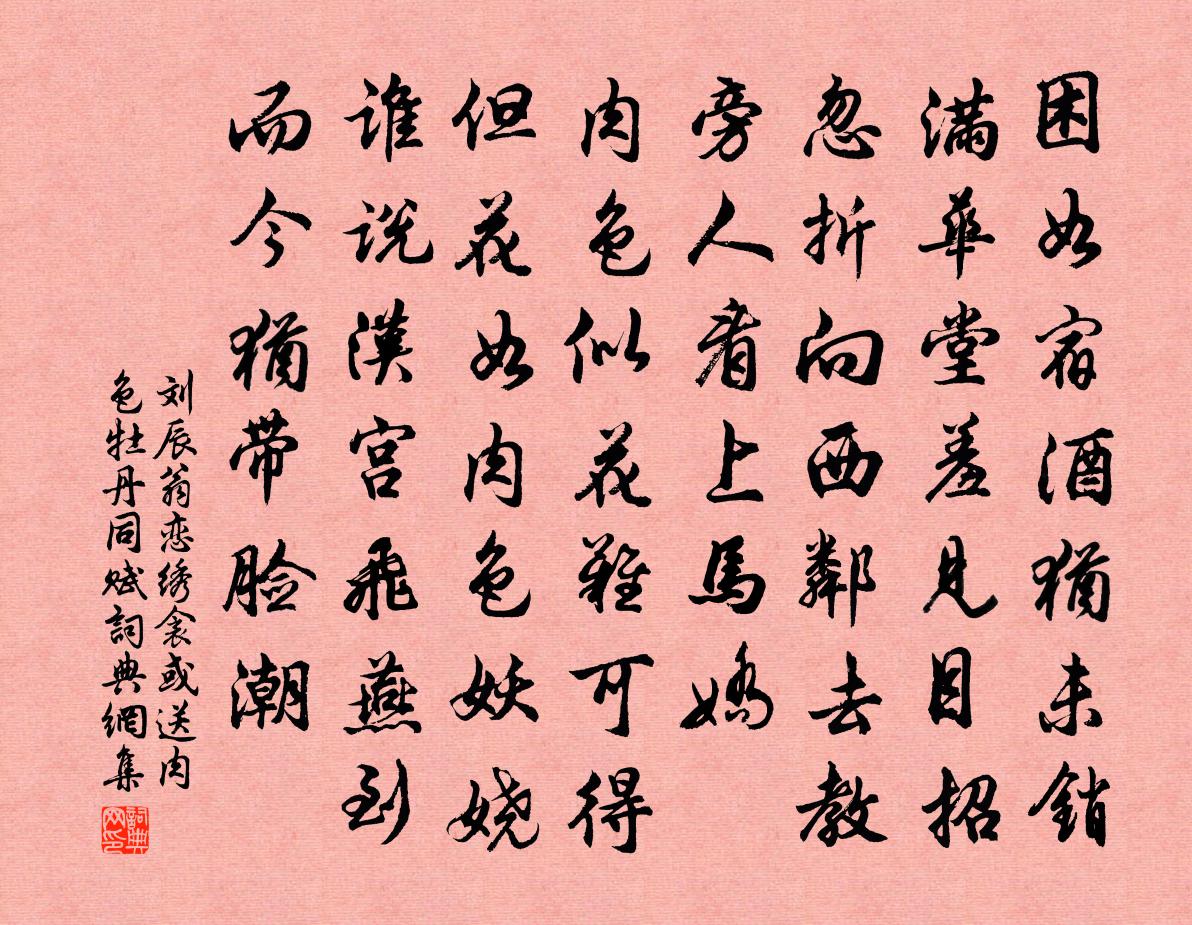 困如宿酒犹未销
满华堂羞见目招
忽折向西邻去教
旁人看上马娇
肉色似花难可得
但花如肉色妖娆
谁说汉宫飞燕到
而今犹带脸潮
刘辰翁恋绣衾或送肉
色牡丹同赋詞典網集
詞典网印